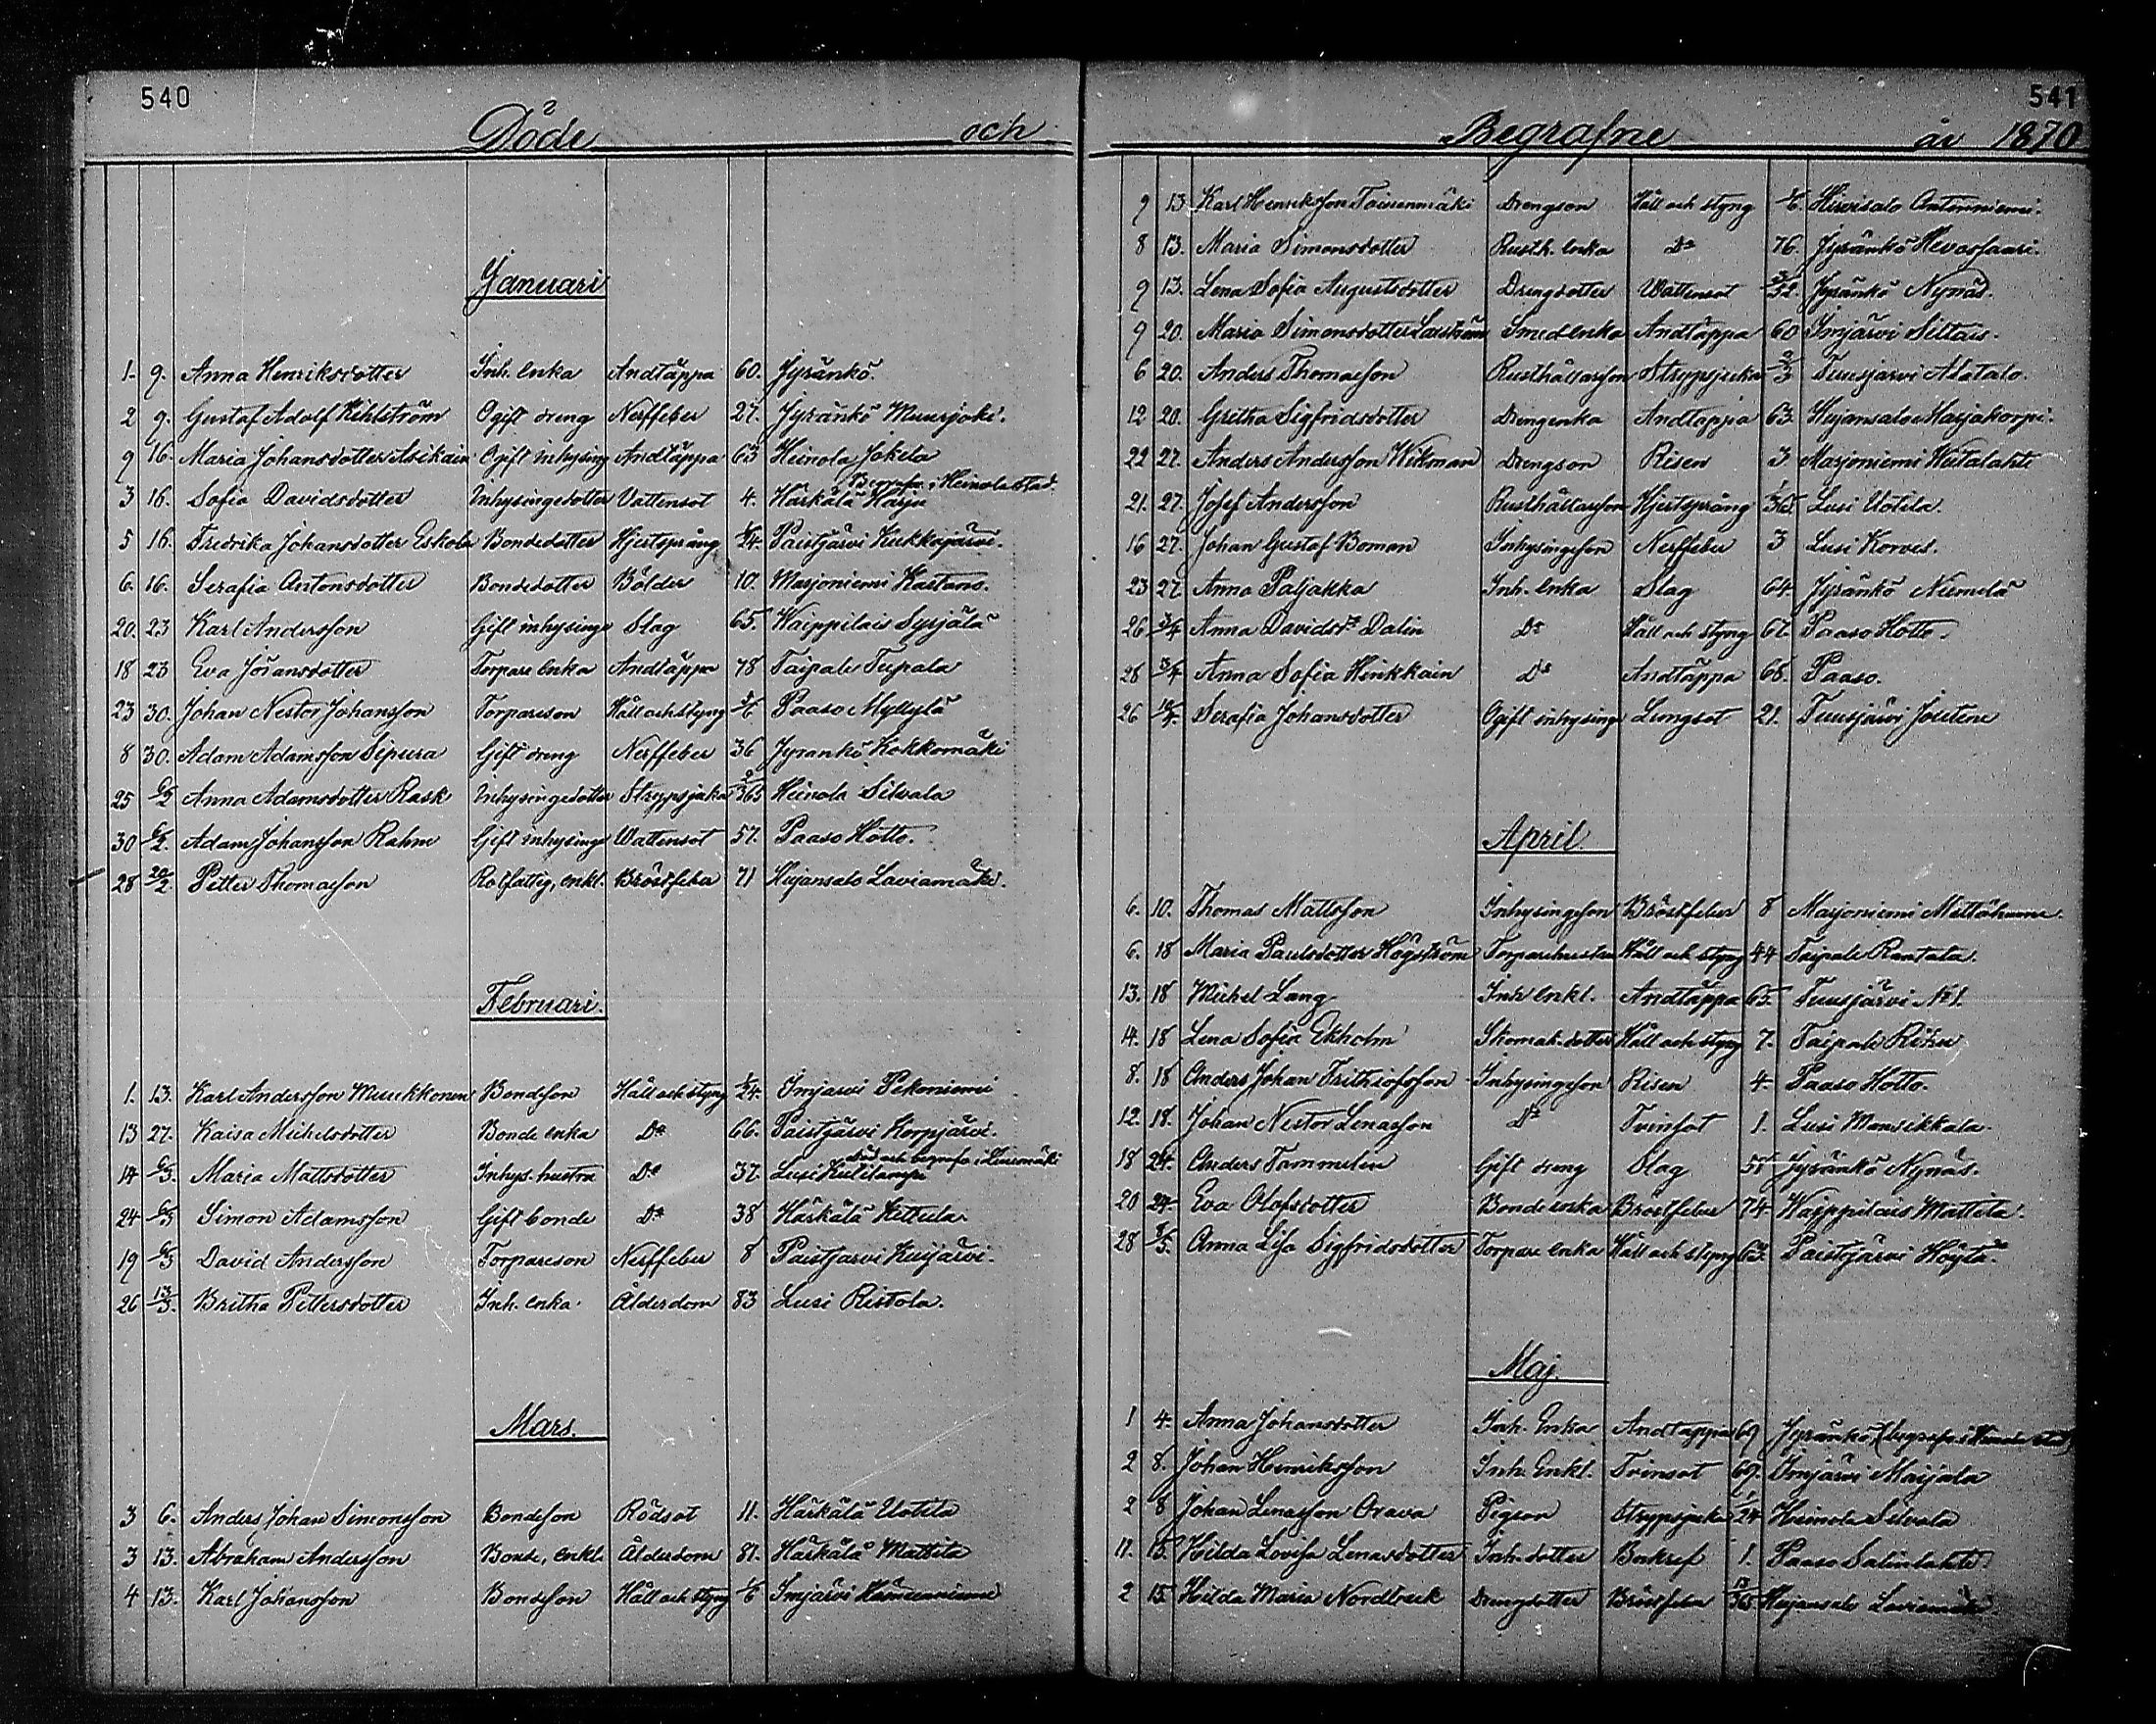 540
Döde och
Januari
1. 9. Anna Henriksdotter Inh. enka Andtäppa 60. Jyränkö.
2 9. Gustaf Adolf Kihlström Ogift dreng Nerffeber 27. Jyränkö Muurjoki.
9 16. Maria Johansdotter Asikain Ogift inhysing Andtäppa 63 Heinola Jokela
Begrafn i Heinola stad.
3 16. Sofia Davidsdotter Inhysingedotter Vattensot 4. Härkälä Harju
5 16. Fredrika Johansdotter Eskola Bondedotter Hjertsprång 1/24. Paistjärvi Kukkajärvi.
6. 16. Serafia Antonsdotter Bondedotter Bölder 10. Marjoniemi Kaetans.
20. 23 Karl Andersson Gift inhysinge Slag 65. Waippilais Syrjälä
18 23 Eva Jöransdotter Torpare enka Andtäppa 78 Taipale Tupala
23 30. Johan Nestor Johansson Torpareson Håll och styng Paaso Myllylä
8 30. Adam Adamsson Sipura Gift dreng Nerffeber 36 Jyränkö Kokkomäki
25 6/2 Anna Adamsdotter Rask Inhysingedotter Strypsjuka 2/365 Heinola Silvala
30 6/2. Adam Johansson Rahm Gift inhysinge Wattensot 57. Paaso Hotto.
28 20/2. Petter Thomasson Rotfattig, enkl. Bröstfeber 71 Hujansalo Laviamäki.
Februari.
1. 13. Karl Andersson Muukkonen Bondson Håll och styng 1/24. Imjärvi Pekoniemi
13 27. Kaisa Michelsdotter Bonde enka Do 66. Paistjärvi Korpjärvi.
död och begrafn i Liisinmäki
14 6/3. Maria Mattsdotter Inhys. hustru Do 37. Lusi Kulilampi
24 6/3 Simon Adamsson Gift bonde Do 38 Härkälä Kettula
19 6/3 David Andersson Torpareson Nerffeber 8 Paistjärvi Kuijärvi.
26 13/3. Britha Pettersdotter Inh. enka. Ålderdom 83 Lusi Ristola.
Mars.
3 6. Anders Johan Simonsson Bondeson Rödsot 11. Härkälä Uotila
3 13. Abraham Andersson Bonde, enkl. Ålderdom 81. Härkälä Mattila
4 13. Karl Johansson Bondeson Håll och styng 1/6 Imjärvi
541
Begrafne år 1870
9 13 Karl Henriksson Tainenmäki Drengson Håll och styng Hirvisalo Anttinniemi.
8 13. Maria Simonsdotter Rusth. enka Do 76. Jyränkö Hevossaari.
9 13. Lena Sofia Augustsdotter Drengdotter Wattensot 3/52. Jyränkö Nynäs.
9 20. Maria Simonsdotter Smed enka Andtäppa 60 Imjärvi Siltais.
6 20. Anders Thomasson Rusthållarson Strypsjuka 2/3 Tuusjärvi Alatalo.
12 20. Gretha Sigfridsdotter Drengenka Andtäppa 63. Hujansalo Harjakorpi.
22 27. Anders Andersson Wikman Drengson Risen 3 Marjoniemi Huitalahti
21. 27. Josef Andersson Rusthållarson Hjertsprång 1/365 Lusi Uotila.
16 27. Johan Gustaf Boman Inhysingeson Nerffeber 3 Lusi Korvis.
23 27 Anna Paljakka Inh. enka Slag 64. Jyränkö Niemelä
26 3/4 Anna Davidsdr Dalin Do Håll och styng 67. Paaso Hotto.
28 3/4 Anna Sofia Hinkkain Do Andtäppa 68. Paaso.
26 10/4. Serafia Johansdotter Ogift inhysinge Lungsot 21. Tuusjärvi Joutene
April.
6. 10. Thomas Mattsson Inhysingeson Bröstfeber 8 Marjoniemi
6. 18 Maria Paulsdotter Högström Torparehustru Håll och styng 44 Taipale Rantala.
13. 18 Michel Lang Inh. enkl. Andtäppa 65. Tuusjärvi No 1.
14. 18 Lena Sofia Ekholm Skomak. dotter Håll och styng 7. Taipale Riku
8. 18 Anders Johan Frithiofsson Inhysingeson Risen 4. Paaso Hotto.
12. 18. Johan Nestor Lenasson Do Tvinsot 1. Lusi Mansikkala.
18 24. Anders Tammelin Gift dreng Slag 58 Jyränkö Nynäs.
20 24. Eva Olofsdotter Bonde enka Bröstfeber 74. Waippilais Mattila.
28 8/5. Anna Lisa Sigfridsdotter Torpare enka Håll och styng 63. Paistjärvi Höytä.
Maj.
1 4. Anna Johansdotter Inh. Enka Andtäppa 69 Jyränkö (begrafn i Heinola stad)
2 8. Johan Henriksson Inh. Enkl. Tvinsot 69. Imjärvi Maijala
2 8 Johan Lenasson Orava Pigson Strypsjuka 1/24 Heinola Silvala
11. 15. Hilda Lovisa Lenasdotter Inh. dotter Benkref 1. Paaso Salinlahti
2 15. Hilda Maria Nordbeck Drengdotter Bröstfeber 13/365 Hujansalo Laviamäki